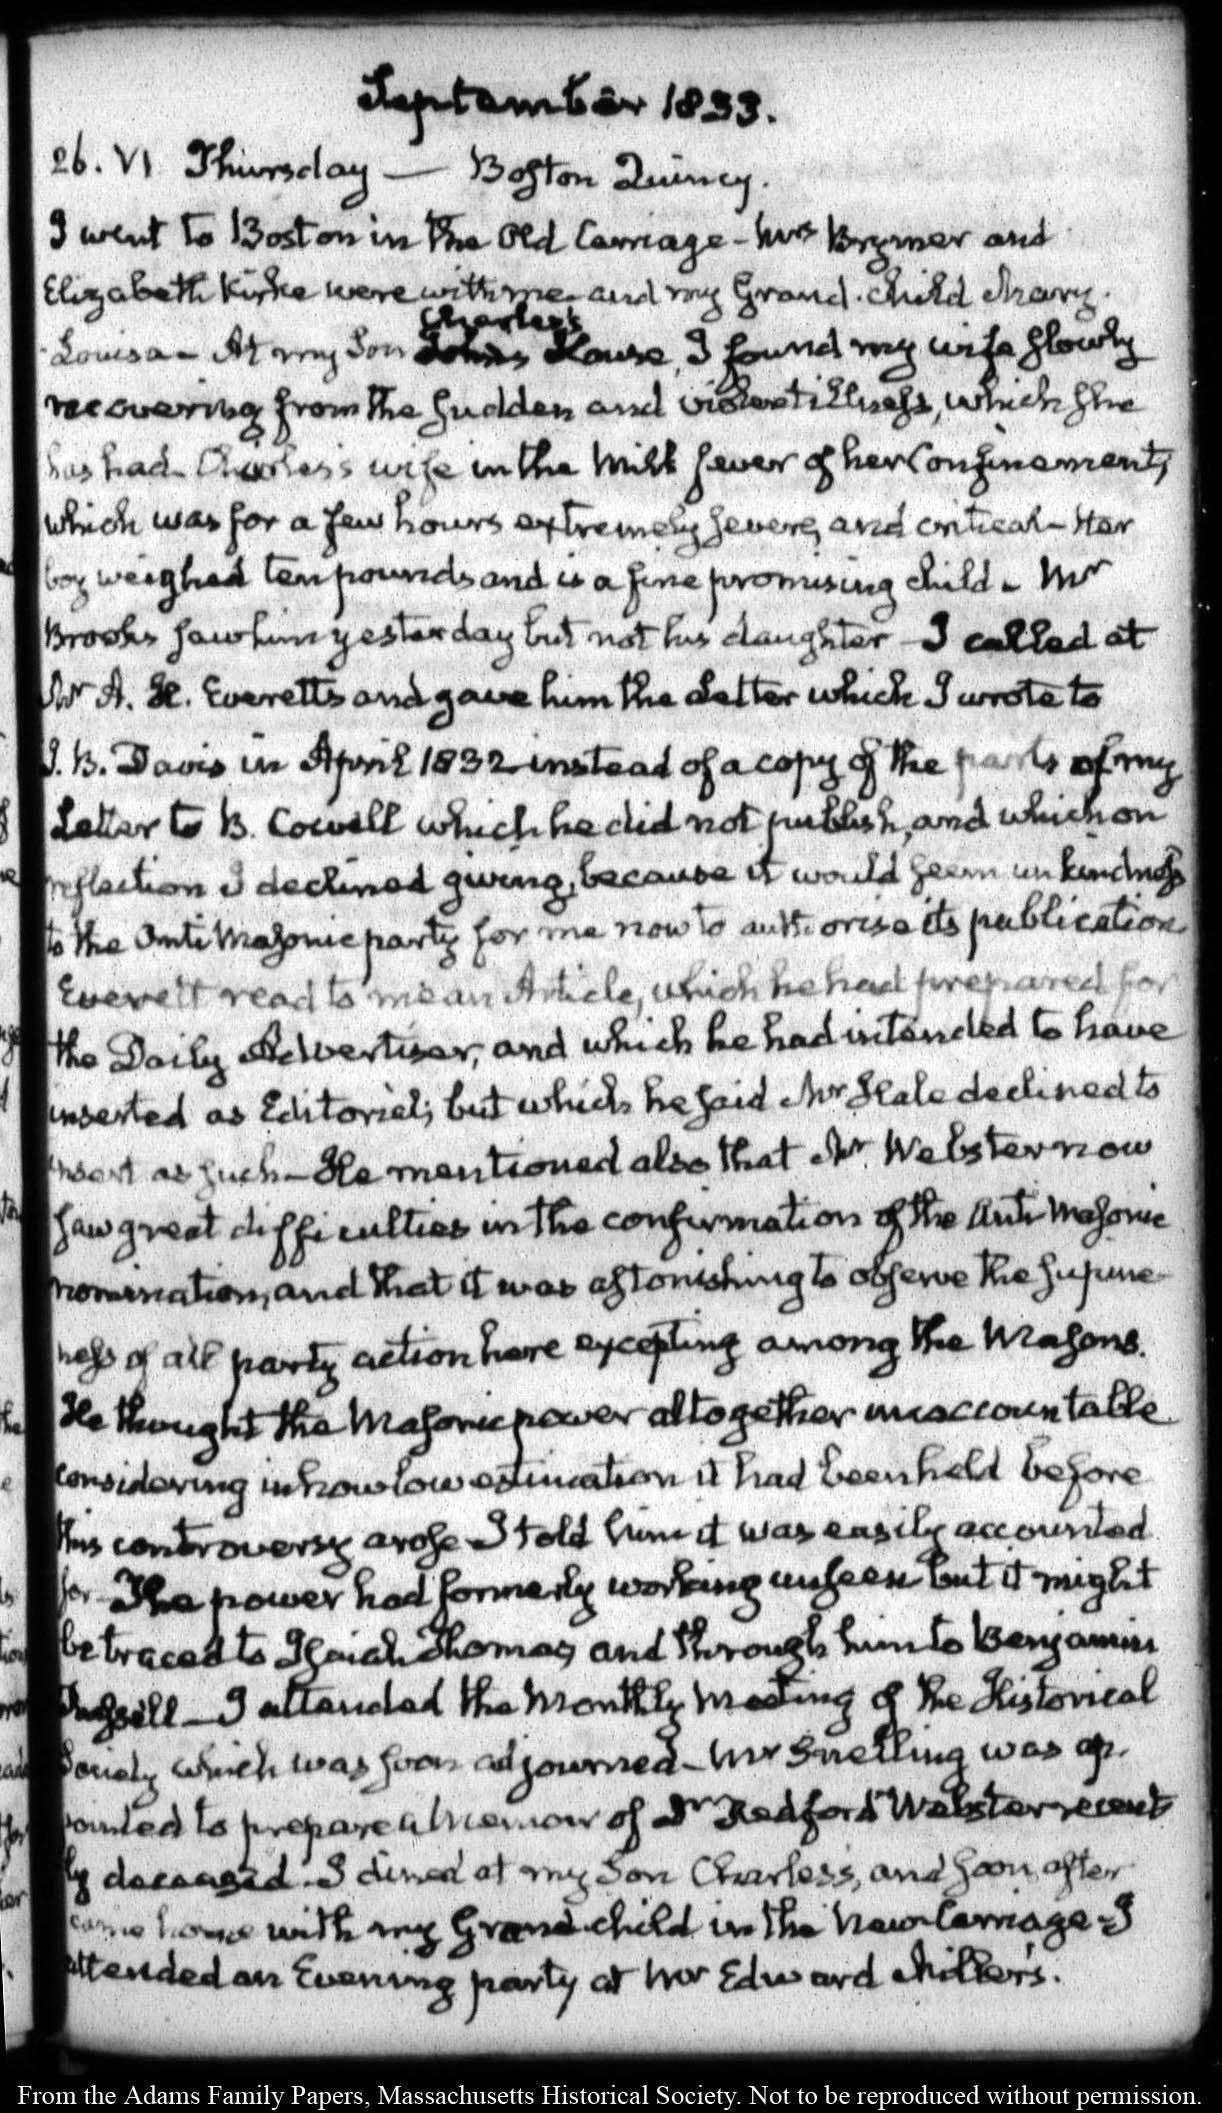 September 1833.
26. VI Thursday — Boston Quincy.
I went to Boston in the Old Carriage - Mrs Brymer and
Elizabeth Kirke were with me and my Grand-child Mary-
Louisa - At my Son Charles's Johns House, I found my wife slowly
recovering from the sudden and violent illness, which she
has had - Charles's wife in the Milk fever of her Confinement,
which was for a few hours extremely severe, and critical - Her
boy weighed ten pounds and is a fine promising child - Mr
Brooks saw him yesterday but not his daughter - I called at
Mr A. H. Everetts and gave him the Letter which I wrote to
J. B. Davis in April 1832 instead of a copy of the parts of my
Letter to B. Cowell which he did not publish, and which on
reflection I declined giving, because it would seem unkindness
to the Anti Masonic party for me now to authorise its publication
Everett read to me an Article, which he had prepared for
the Daily Advertiser, and which he had intended to have
inserted as Editorial; but which he said Mr Hale declined to
insert as such - He mentioned also that Mr. Webster now
saw great difficulties in the confirmation of the Anti Masonic
nomination, and that it was astonishing to observe the supine-
ness of all party action here excepting among the Masons.
He thought the Masonic power altogether unaccountable
considering in how low estimation it had been held before
this controversy arose - I told him it was easily accounted
for - The power had formerly working unseen but it might
be traced to Isaiah Thomas, and through him to Benjamin
Russell - I attended the Monthly Meeting of the Historical
Society which was soon adjourned - Mr Snelling was ap-
pointed to prepare a Memoir of Dr Redford Webster recent-
ly deceased - I dined at my Son Charles's, and soon after
came home with my Grand-child in the New Carriage - I
attended an Evening party at Mr Edward Miller's.
From the Adams Family Papers, Massachusetts Historical Society. Not to be reproduced without permission.